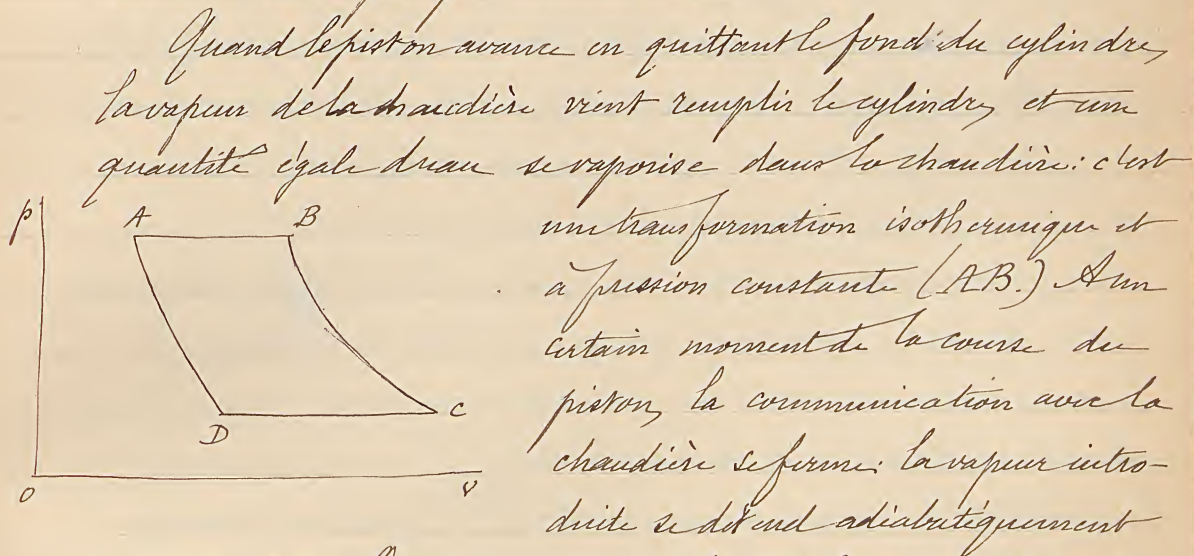 Quand le piston avance en quittant le fond du cylindre,
la vapeur de la chaudière vient remplir le cylindre, et une
quantité égale d'eau se vaporise dans la chaudière : c'est
une transformation isothermique et
à pression constante (AB.) A un
certain moment de la course du
piston, la communication avec la
chaudière se ferme : la vapeur intro-
duite se détend adiabatiquement
p
A
B
C
D
O
v